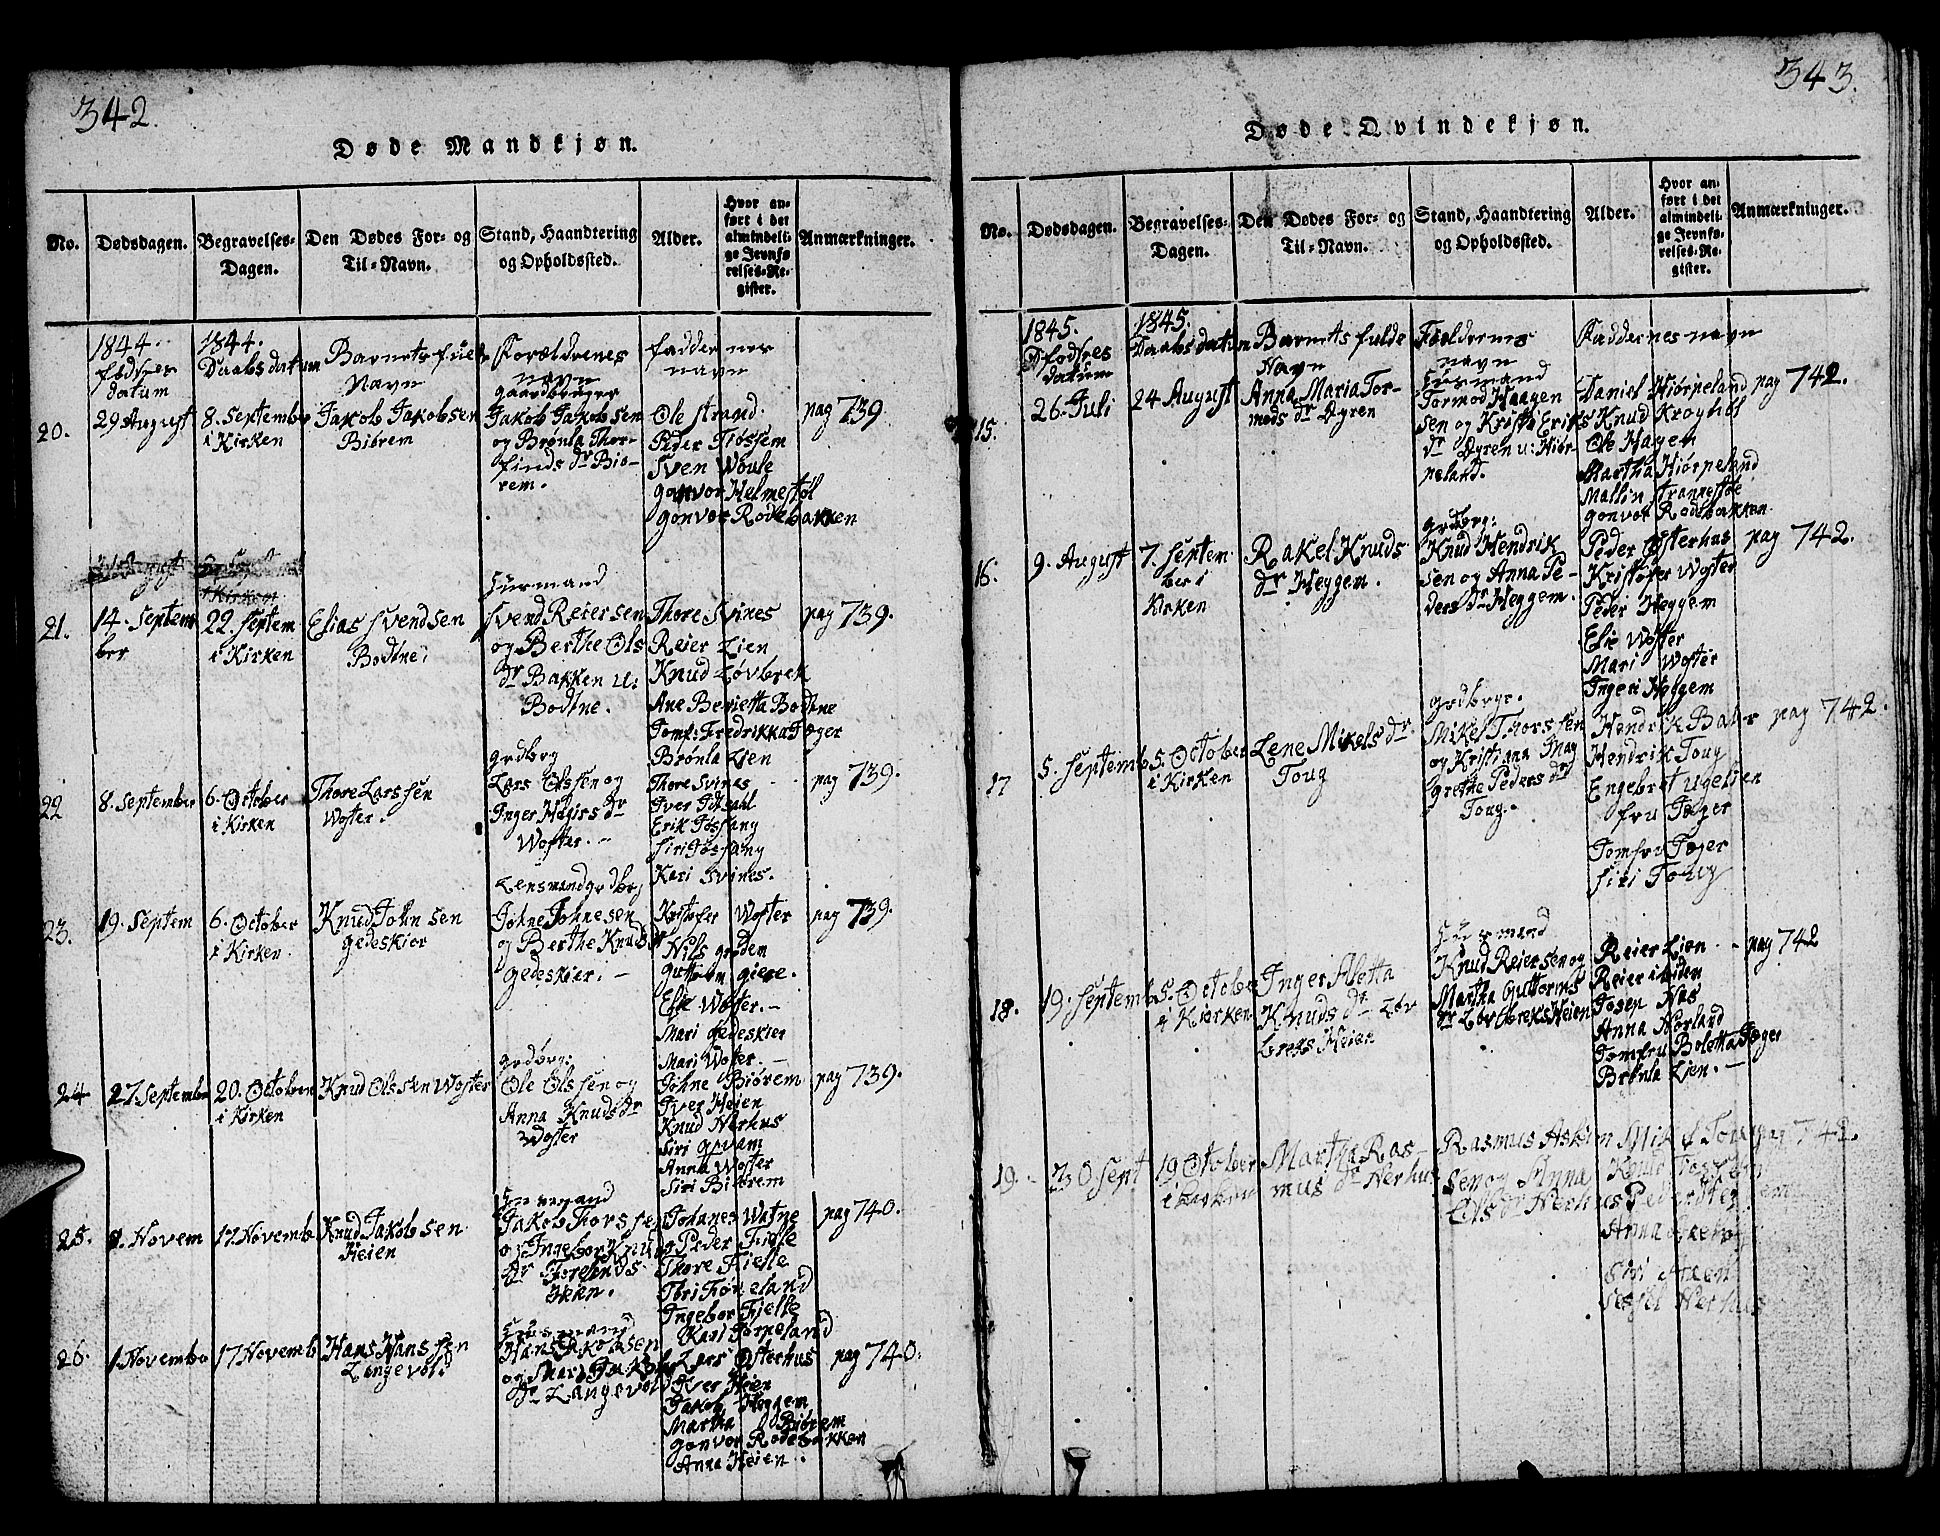 342.
Døde Mandkjøn.
No.
Dødsdagen.
Begravelses-
Dagen.
Den Dødes For- og
Til-Navn.
Stand, Haandtering
og Opholdssted.
Alder.
Hvor an-
ført i det
almindeli-
ge Jevnfø-
relses-Re-
gister.
Anmærkninger.
1844.
fødses
datum
1844.
Daabs datum
Barnets fulde
Navn
Forældrenes
navn
faddernes
navn
20.
29 August
8. September
i Kirken
Jakob Jakobsen
Biörem
gaardbruger
Jakob Jakobsen
og Brønla Thor-
finds dr Biö-
rem.
Ole Strand.
Peder Tiøssem
Sven Woule
Gonvor Helmestøl
Gonvor Rodebakken
pag 739.
21.
14. Septem
ber
22. Septem
i Kirken
Elias Svendsen
Bodtne.
Husmand
Svend Reiersen
og Berthe Ols
dr Bakken u:
Bodtne.
Thore Svines
Reier Lien
Knud Løvbrek
Ane Berietta Bodtne
Jomf: Fredrikka Jæger
Brønla Lien
pag 739.
22
8. September
6. October
i Kirken
Thore Larssen
Woster.
grdbrg
Lars Olssen og
Inger Hegirs dr
Woster. -
Thore Svines
Iver Idsahl
Erik Føssang
Siri Føssang
Kari Svines.
pag 739.
23.
19. Septem
6. October
i Kirken
Knud Johnsen
Gedeskier
Lensmand grdbrg
Johne Johnesen
og Berthe Knuds dr
Gedeskier. -
Kristofer Woster
Nils grødem
Guttorm giere.
Elie Woster. -
Mari Gedeskier
Mari Woster. -
pag 739.
24
27. September
20. October
i Kirken
Knud Olssen Woster
grdbrg:
Ole Olssen og
Anna Knuds dr
Woster
Johne Biörem
Iver Heien
Knud Nerhus
Siri Qvam
Anna Woster
Siri Biörem
pag 739.
25.
Novem
17. Novemb
Knud Jakobsen
Heien
Husmand
Jakob Thorssen
og Ingeborg Knud
dr
Heien.
Johanes Watne
Peder Fielle
Thore Fielle
Ingebor Fielle
Kari Jörpeland
pag 740.
26.
1. November
17 Novemb
Hans Hanssen
Langevol:
Husmand
Hans Jakobsen
og Mari Jakobs
dr Langevold
Lars Østerhus
Iver Heien
Jakob Heggem
Martha Biörem
Gonvor Rodebakken
Anna Heien.
pag 740.
343.
Døde Qvindekjøn.
No.
Dødsdagen.
Begravelses-
Dagen.
Den Dødes For- og
Til-Navn.
Stand, Haandtering
og Opholdssted.
Alder.
Hvor an-
ført i det
almindeli-
ge Jevnfø-
relses-Re-
gister.
Anmærkninger.
1845.
fødses
datum
1845.
Daabs datum
Barnets fulde
Navn
Forældrenes
navn
Faddernes navn
15.
26. Juli
24 August
Anna Maria Tor-
mods dr Øyren
Husmand
Tormod Haagen
sen og Kristi Eriks
dr Øyren u: Hiör-
peland.
Daniel Hiørpeland
Knud Kroghøl
Ole Hagen
Martha Hiørpeland
Mallin Strannestøe
Gonvor Rodebakken
pag 742.
16.
9. August
7. Septem
ber i
Kirken
Rakel Knuds
dr Heggem.
grdbrg:
Knud Hendrik
sen og Anna Pe-
ders dr Heggem.
Peder Østerhus
Kristofer Woster
Peder Heggem
Elie Woster
Mari Woster
Ingeri Heggem
pag 742.
17
5. Septemb
5. October
i Kirken
Lene Mikels dr
Toug
grdbrgr.
Mikel Thorssen
og Kristiana Inag
grethe Peders dr
Toug.
Hendrik Bader
Hendrik Toug
Engebret Ugelsien
fru Jæger
Jomfru Jæger
Siri Toug
pag 742.
18.
19. Septemb
5. October
i Kiørken
Inger Aletta
Knuds dr Løv
breks Heien
Husmand
Knud Reiersen og
Martha Guttorms
dr Løvbreks Heien
Reier Lien
Reier i Liden
Josep Nas
Anna Norland
Jomfru Boletta Jæger
Brønla Lien. -
pag 742
19.
30 Sept
19 October
i Kirken
Martha Ras-
mus dr Nerhus
Rasmus Aslin
sen og Anna
Els dr Nerhus
Siri
Sessel Nerhus
742.